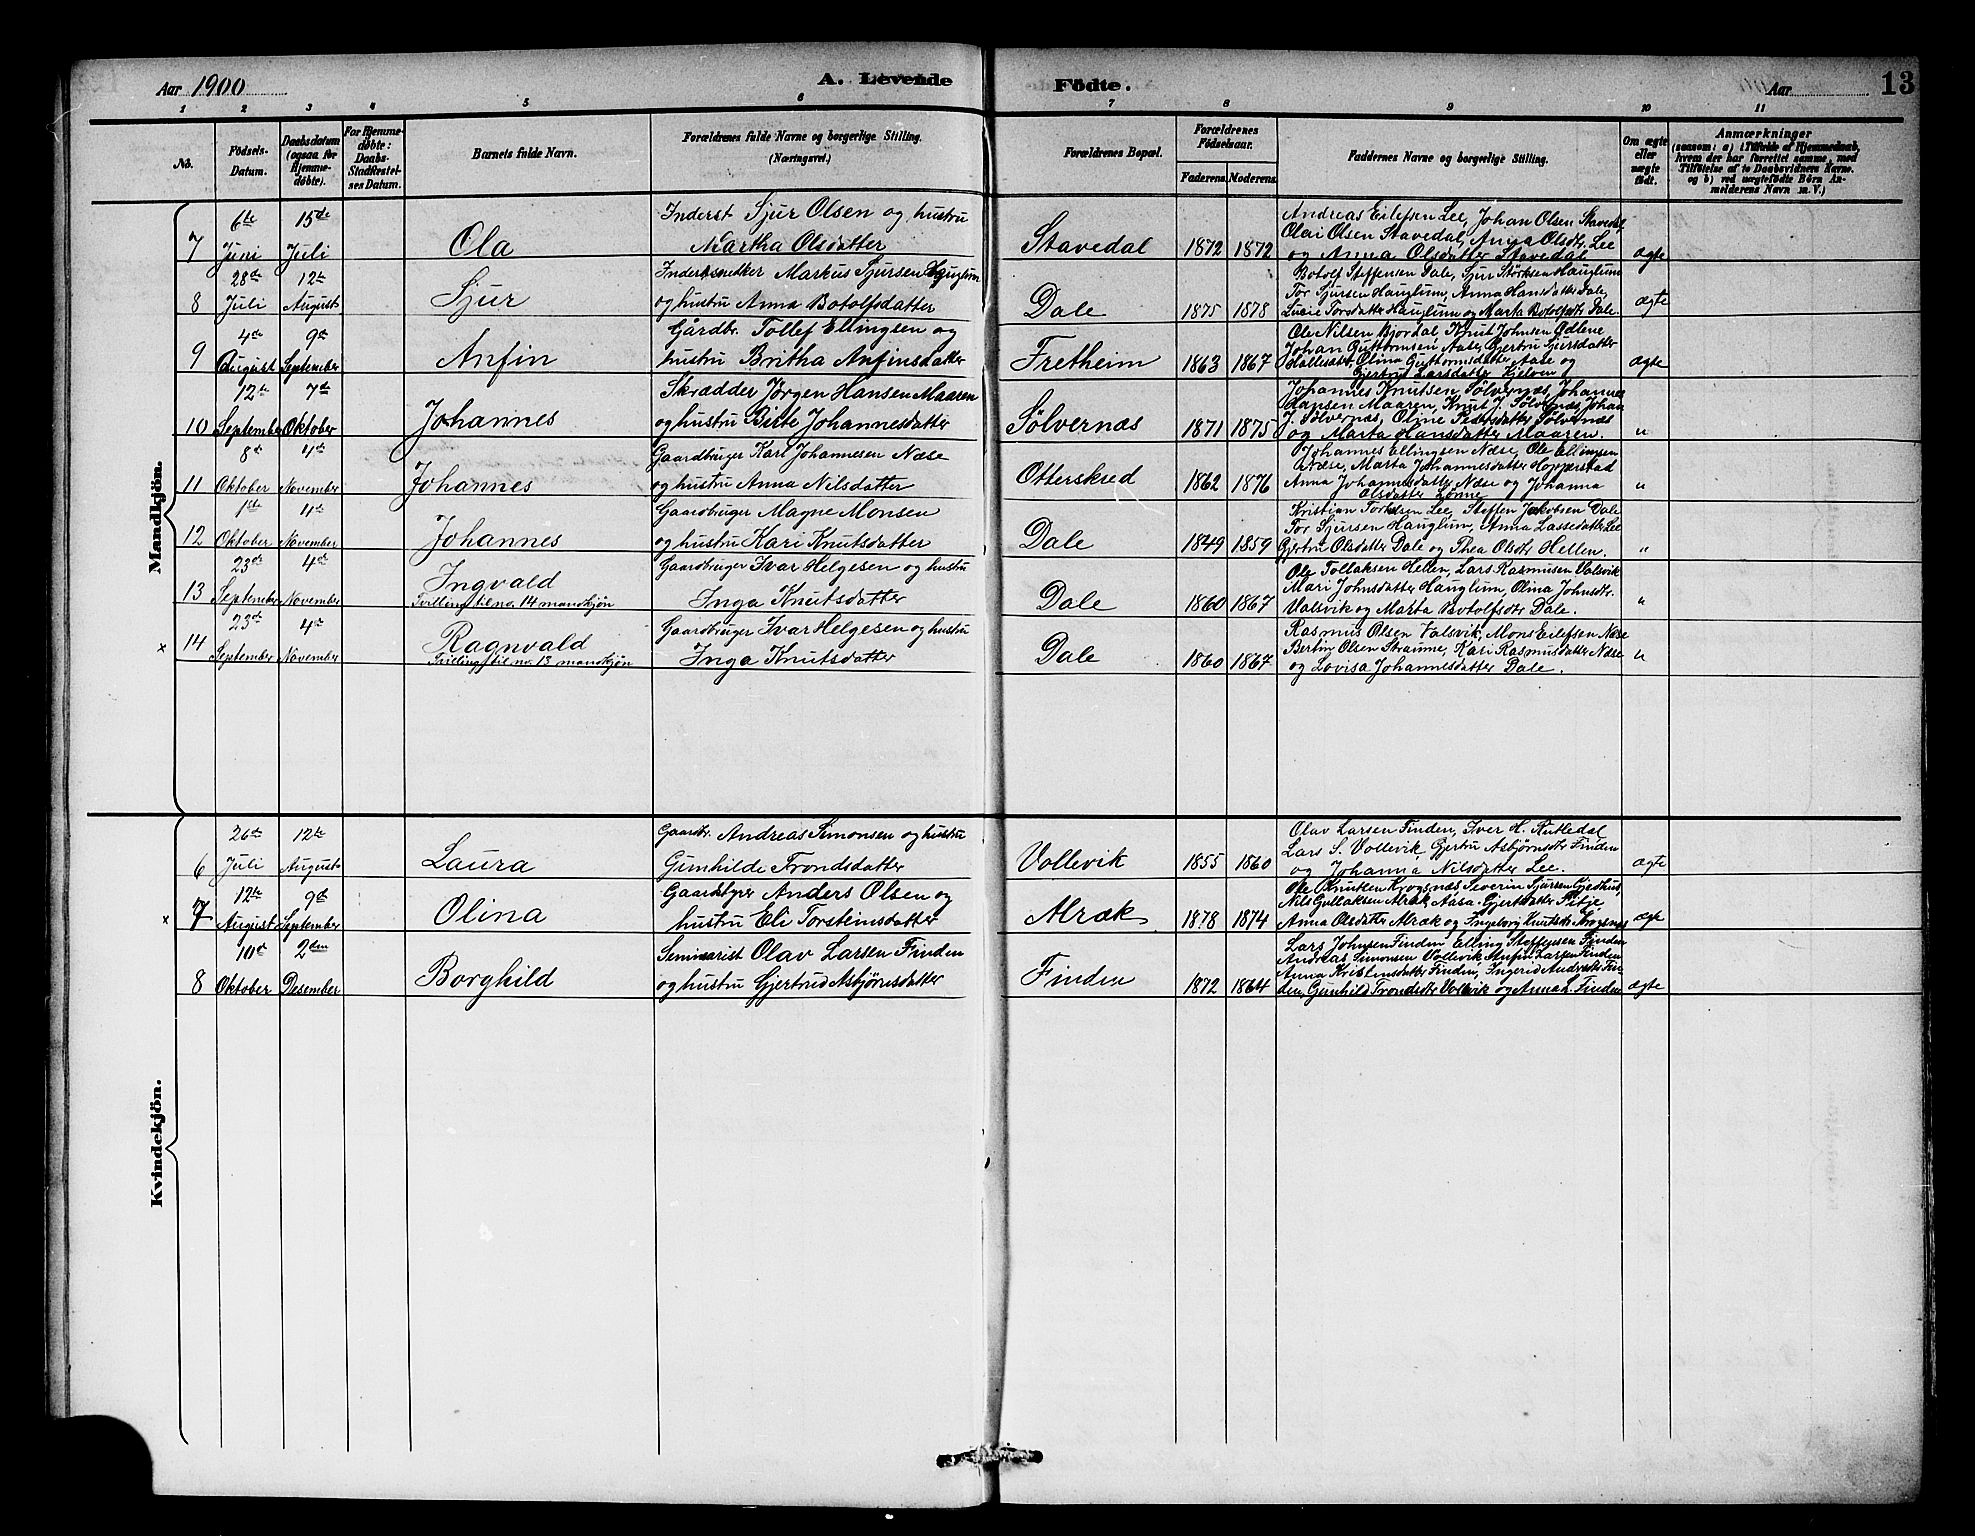 Aar 1900 A. Levende Födte. Aar 13
1 2 3 4 5 6 7 8 9 10 11
No. Födsels-Datum. Daabsdatum (ogsaa for Hjemmedøbte). For Hjemmedøbte: Daabs-Stadfæstelses Datum. Barnets fulde Navn. Forældrenes fulde Navne og borgerlige Stilling. (Næringsvei.) Forældrenes Bopæl. Forældrenes Födselsaar. Faderens Moderens Faddernes Navne og borgerlige Stilling. Om ægte eller uægte födt. Anmærkninger
Mandkjön.
6te 15de Inderst Sjur Olsen og hustru Andreas Eilefsen Lee, Johan Olsen Stavedal
Olai Olsen Stavedal, Anna Olsdtr. Lee
7 Juni Juli Ola Martha Olsdatter Stavedal 1872 1872 og Anna Olsdatter Stavedal ægte
28de 12te Markus Sjursen Hauglum Botolf Steffensen Dale, Sjur Hauglum
Tor Sjursen Hauglum, Anna Hansdatter Dale,
8 Juli August Sjur og hustru Anna Botolfsdatter Dale 1875 1878 Lucie Torsdatter Hauglum og Marta Botolfsdtr Dale. ægte
4de 9de Gårdbr. Tollef Ellingsen og Ole Nilsen Bjordal, Knut Johnsen Ødlene
Johan Guttormsen Aase, Gjertru Sjursdatter
9 August September Anfin hustru Britha Anfinsdatter Fretheim 1863 1867 Olina Guthormsdatter Aase og ægte
Gjertrud Larsdatter
12te 7de Skrædder Jørgen Hansen Maaren Johannes Knutsen Sølvernæs, Johannes
Hansen Maaren, Knut J. Sølvernæs, Johan
10 September Oktober Johannes og hustru Birte Johannesdatter Sölvernæs 1871 1875 J. Sølvernæs, Oline Pedersdatter Sølvernæs
og Marta Hansdatter Maaren. "
8de 4de Gaardbruger Karl Johannesen Næse Johannes Ellingsen Næse, Ole Ellingsen
Næse, Marta Johannesdatter Hopperstad
11 Oktober November Johannes og hustru Anna Nilsdatter Otterskred 1862 1876 Anna Johannesdatter Næse og Johanna "
Olsdatter Lønne
1ste 4de Gaardbruger Magne Monsen Kristian Lee, Steffen Jakobsen Dale
Tor Sjursen Hauglum, Anna Lassedatter Lee
12 Oktober November Johannes og hustru Kari Knutsdatter Dale 1849 1859 Gjertru Olsdatter Dale og Thea Olsdtr Hellen. "
23de 4de Ingvald Gaardbruger Ivar Helgesen og hustru Ole Tollaksen Hellen, Lars Rasmusen Valsvik
Mari Johnsdatter Hauglum, Olina Johnsdtr.
13 September November Tvilling til no. 14 mandkjön Inga Knutsdatter Dale 1860 1867 Valsvik og Marta Botolfsdtr Dale. "
23de 4de Ragnvald Gaardbruger Ivar Helgesen og hustru Rasmus Olsen Valsvik, Mons Eilefsen Næse
x 14 Bertin Olsen Straume, Kari Rasmusdatter Næse
September November Tvilling til no. 13 mandkjön Inga Knutsdatter Dale 1860 1867 og Lovisa Johannesdatter Dale. "
Kvindekjön.
26de 12te Gaardbr. Andreas Simonsen og hustru Olav Larsen Finden, Iver H. Rutledal
Lars S. Vollevik, Gjertru Asbjörnsdtr Finden
6 Juli August Laura Gunhilde Trondsdatter Vollevik 1855 1860 og Johanna Nilsdatter Lee. ægte
12te 9de Anders Olsen og Ole Knutsen Krogsnæs Severin Sjursen
Nils Gullaksen Alræk Aasa Gjertsdatter
x 7 August September Olina hustru Eli Torsteinsdatter Alræk 1878 1874 Anna Olsdatter Alræk og Ingeborg Knutsdtr Krogsnæs ægte
10de 2den Seminarist Olav Larsen Finden Lars Johnsen Finden Elling Steffensen Finden
Andreas Simonsen Vollevik, Anfin Larsen Finden
Anna Kristensdatter Finden, Ingerid Andersdtr Fin-
8 Oktober Desember Borghild og hustru Gjertrud Asbjörnsdatter Finden 1872 1864 den, Gunhild Trondsdtr Vollevik og Anna L. Finden ægte